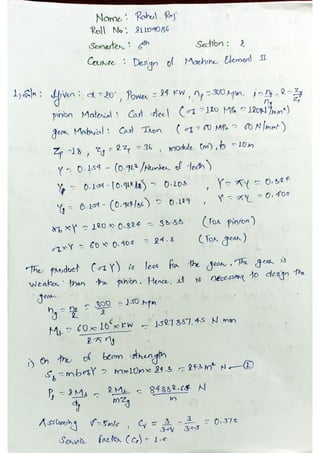 Name: Rahul Raj
Roll No: 21109036
Semester: 6th Section: 2
Course: Design of Machine Element II
1) Soln: Given: α = 20°, Power = 24 KW, np = 300 rpm. i = np/ng = 2 = Zg/Zp
pinion Material: Cast steel (σ = 120 MPa = 120 N/mm²)
gear Material: Cast Iron (σ = 60 MPa = 60 N/mm²)
Zp = 18, Zg = 2Zp = 36, module (m), b = 10m
Y = 0.154 - (0.912/Number of teeth)
Yp = 0.154 - (0.912/18) = 0.103, Y = πY = 0.324
Yg = 0.154 - (0.912/36) = 0.129, Y = πY = 0.405
σ × Y = 120 × 0.324 = 38.88 (For pinion)
σ × Y = 60 × 0.405 = 24.3 (For gear)
The product (σY) is less for the gear. The gear is
weaker than the pinion. Hence, it is necessary to design the
gear.
ng = np/2 = 300/2 = 150 rpm
Mt = 60 × 10⁶ × KW / 2πng = 1527887.45 N mm
i) On the of beam strength
Sb = mbσY = m × 10m × 24.3 = 243 m² N
Pt = 2Mt/dg = 2Mt/mZg = 84882.64/m N
Assuming v = 5 m/s, Cv = 3/3+v = 3/3+5 = 0.375
Service factor (Cs) = 1.5